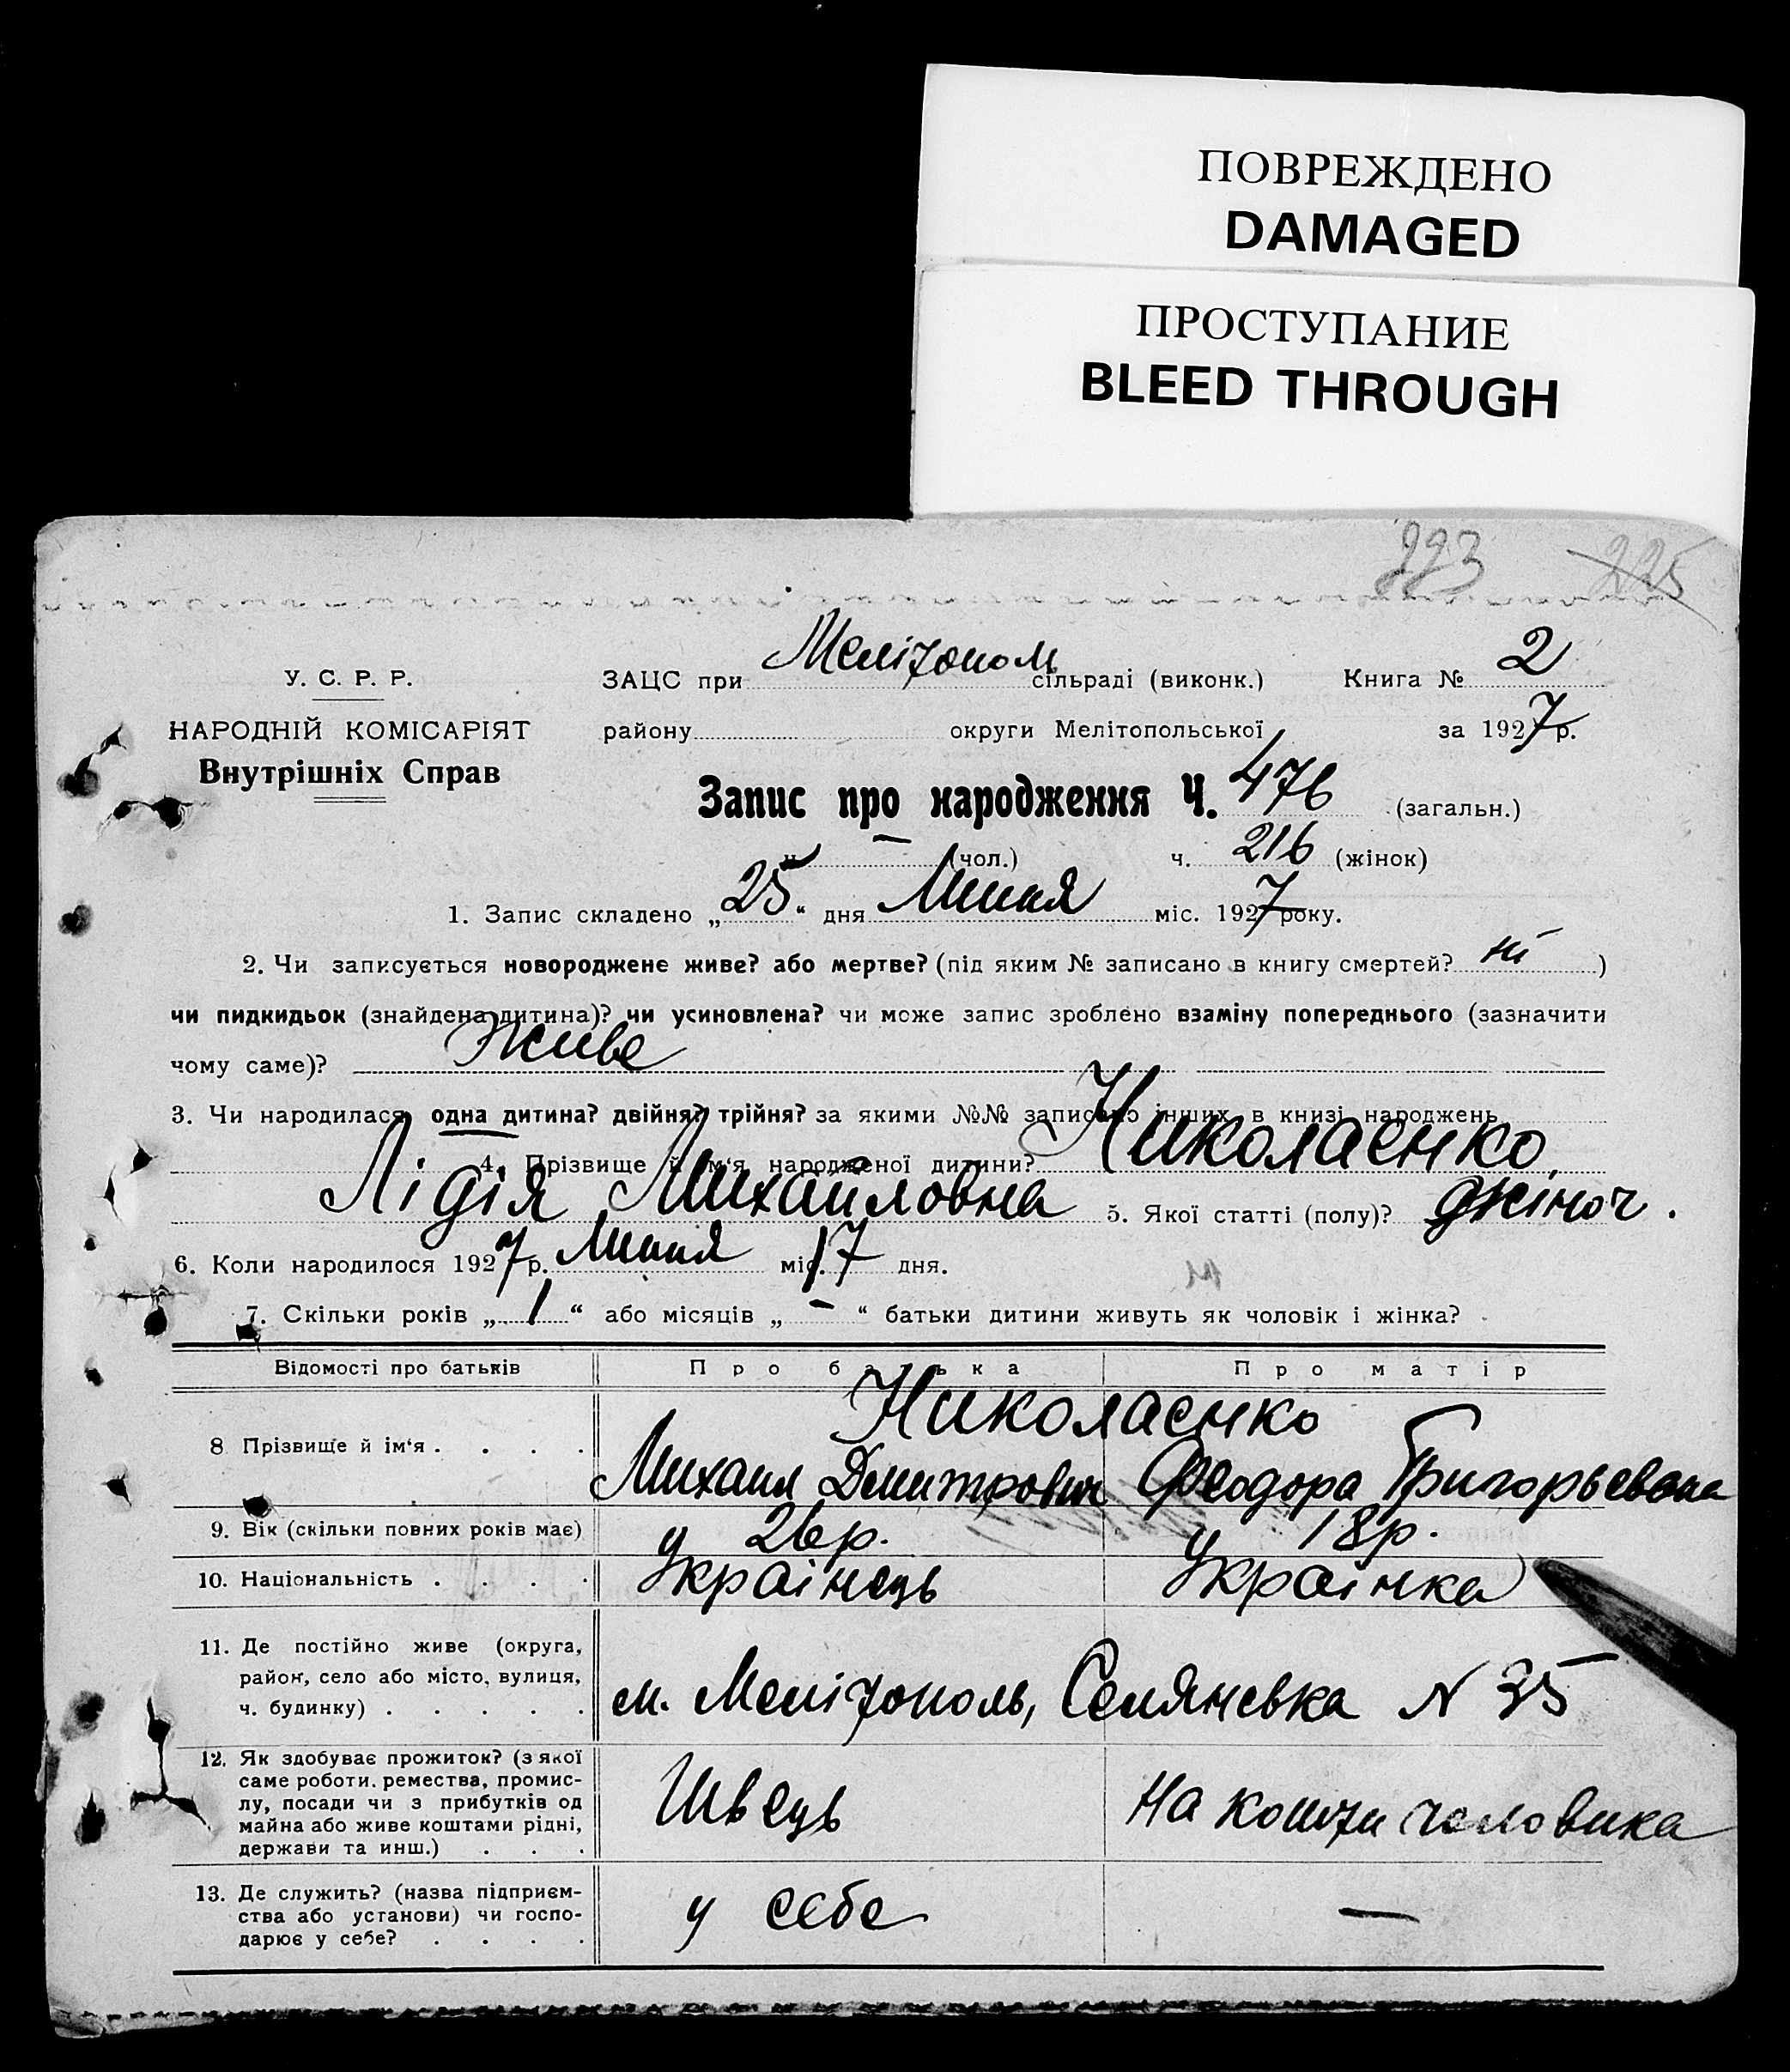 ПОВРЕЖДЕНО
DAMAGED
ПРОСТУПАНИЕ
BLEED THROUGH
223 225
У. С. Р. Р.
НАРОДНІЙ КОМІСАРІЯТ
Внутрішніх Справ
ЗАЦС при Мелітопол сільраді (виконк.) Книга № 2
району округи Мелітопольської за 1927 р.
Запис про народження Ч. 476 (загальн.)
ч. — (чол.) ч. 216 (жінок)
1. Запис складено „25“ дня Липня міс. 1927 року.
2. Чи записується новороджене живе? або мертве? (під яким № записано в книгу смертей? ні )
чи пидкидьок (знайдена дитина)? чи усиновлена? чи може запис зроблено взаміну попереднього (зазначити
чому саме)? Живе
3. Чи народилася одна дитина? двійня? трійня? за якими №№ записано інших в книзі народжень
4. Прізвище й ім‘я народженої дитини? Николаєнко,
Лідія Михайловна 5. Якої статті (полу)? жіноч.
6. Коли народилося 1927 р. Липня міс. 17 дня.
7. Скільки років „ 1 “ або місяців „ - “ батьки дитини живуть як чоловік і жінка?
Відомості про батьків Про батька Про матір
Николаєнко
8 Прізвище й ім‘я . . . . Михаил Дмитрович Феодора Григорьевона
9. Вік (скільки повних років має) 26 р. 18 р.
10. Національність . . . . Українець Українка
11. Де постійно живе (округа,
район, село або місто, вулиця,
ч. будинку) . . . . .
м. Мелітополь, Семянєвка N 35
12. Як здобуває прожиток? (з якої
саме роботи. ремества, промис-
лу, посади чи з прибутків од
майна або живе коштами рідні,
держави та инш.) . . .
Швець На кошти чоловика
13. Де служить? (назва підприєм-
ства або установи) чи госпо-
дарює у себе? . . . .
у себе —